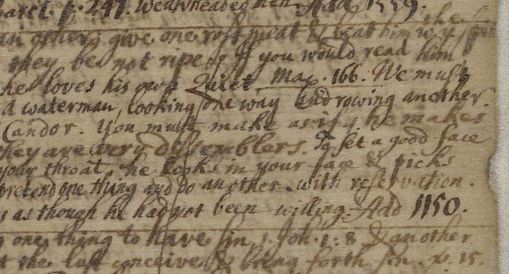 p. 247. Weakheaded men. Add 1559.
an others give one rost meat & beat him
they be not ripe. If you would read him
he loves his own Quiet. Max. 166. We must
a waterman, looking one way and rowing another.
Candor. You must make as if
they are very dissemblers. To set a good face
your throat he looks in your face & picks
pretend one thing and do another. with reservation.
as though he had not been willing. Add 1150.
one thing to have sin 1. Joh. 1. 8 & another
the last conceive & bring forth sin. 15.